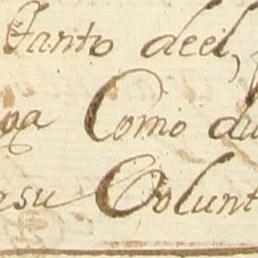 Tanto deel,
Como du
su Volunt